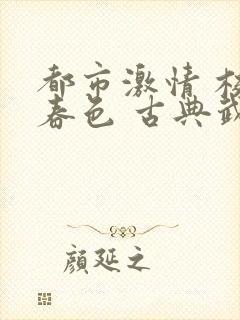 都市激情 校
春色 古典武
顔延之